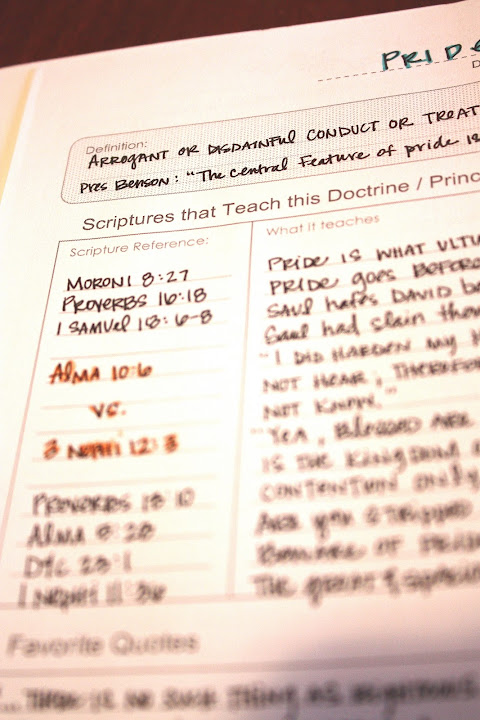 PRIDE
Definition:
ARROGANT OR DISDAINFUL CONDUCT OR TREAT
Pres Benson: "The central Feature of pride is
Scriptures that Teach this Doctrine / Princ
Scripture Reference:
What it teaches
MORONI 8:27
PROVERBS 16:18
1 SAMUEL 18:6-8
Alma 10:6
VS.
3 NEPHI 12:3
PROVERBS 13:10
Alma 5:28
D&C 23:1
1 NEPHI 11:36
PRIDE IS WHAT ULTI
PRIDE goes BEFORE
SAUL hates DAVID be
Saul had slain thou
"I DID HARDEN my H
NOT HEAR; THEREFOR
NOT KNOW."
"YEA, BLESSED ARE
IS THE KINGDOM
CONTENTION ONLY
ARE YOU STRIPPED
BEWARE OF PRIDE
THE great & spacious
Favorite Quotes
"...THERE IS NO SUCH THING AS RIGHTEOUS